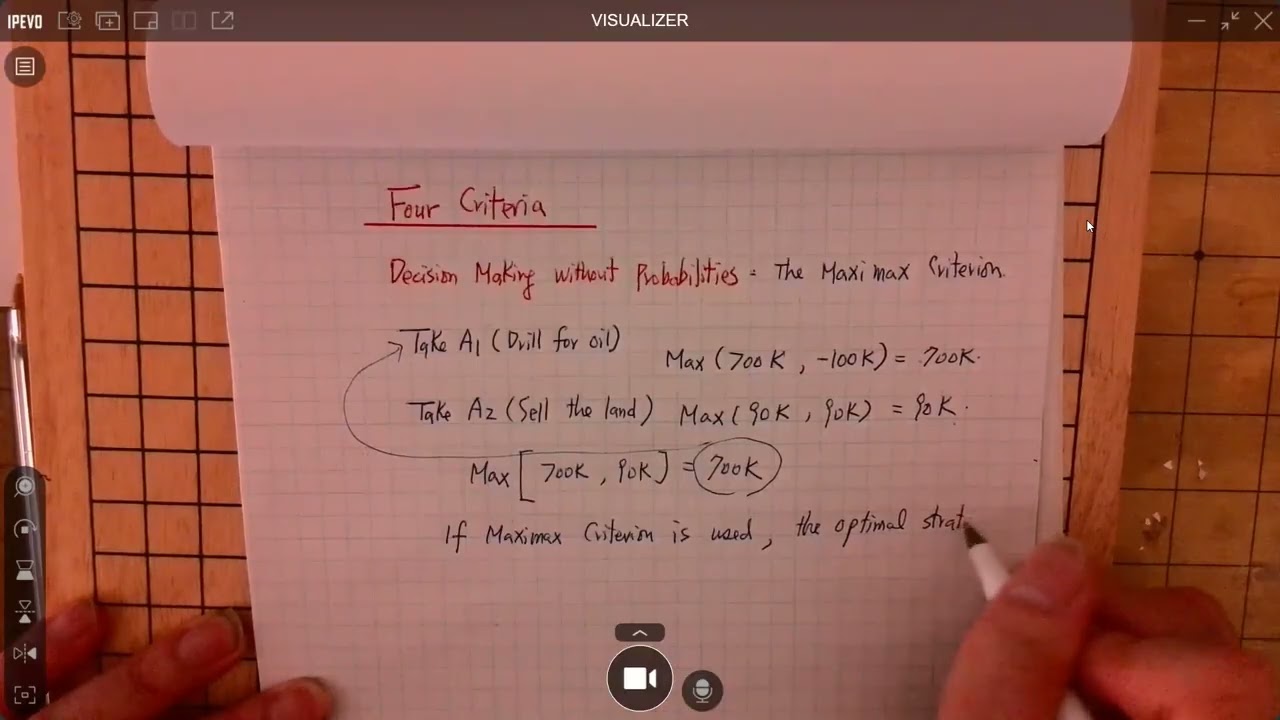 IPEVO
VISUALIZER
Four Criteria
Decision Making without Probabilities = The Maximax Criterion.
Take A1 (Drill for oil) Max (700K, -100K) = 700K.
Take A2 (Sell the land) Max (90K, 90K) = 90K.
Max [700K, 90K] = 700K
If Maximax Criterion is used, the optimal strat